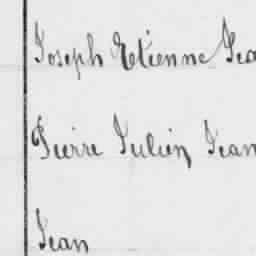 Joseph Etienne Jea
Pierre Julien Jean
Jean